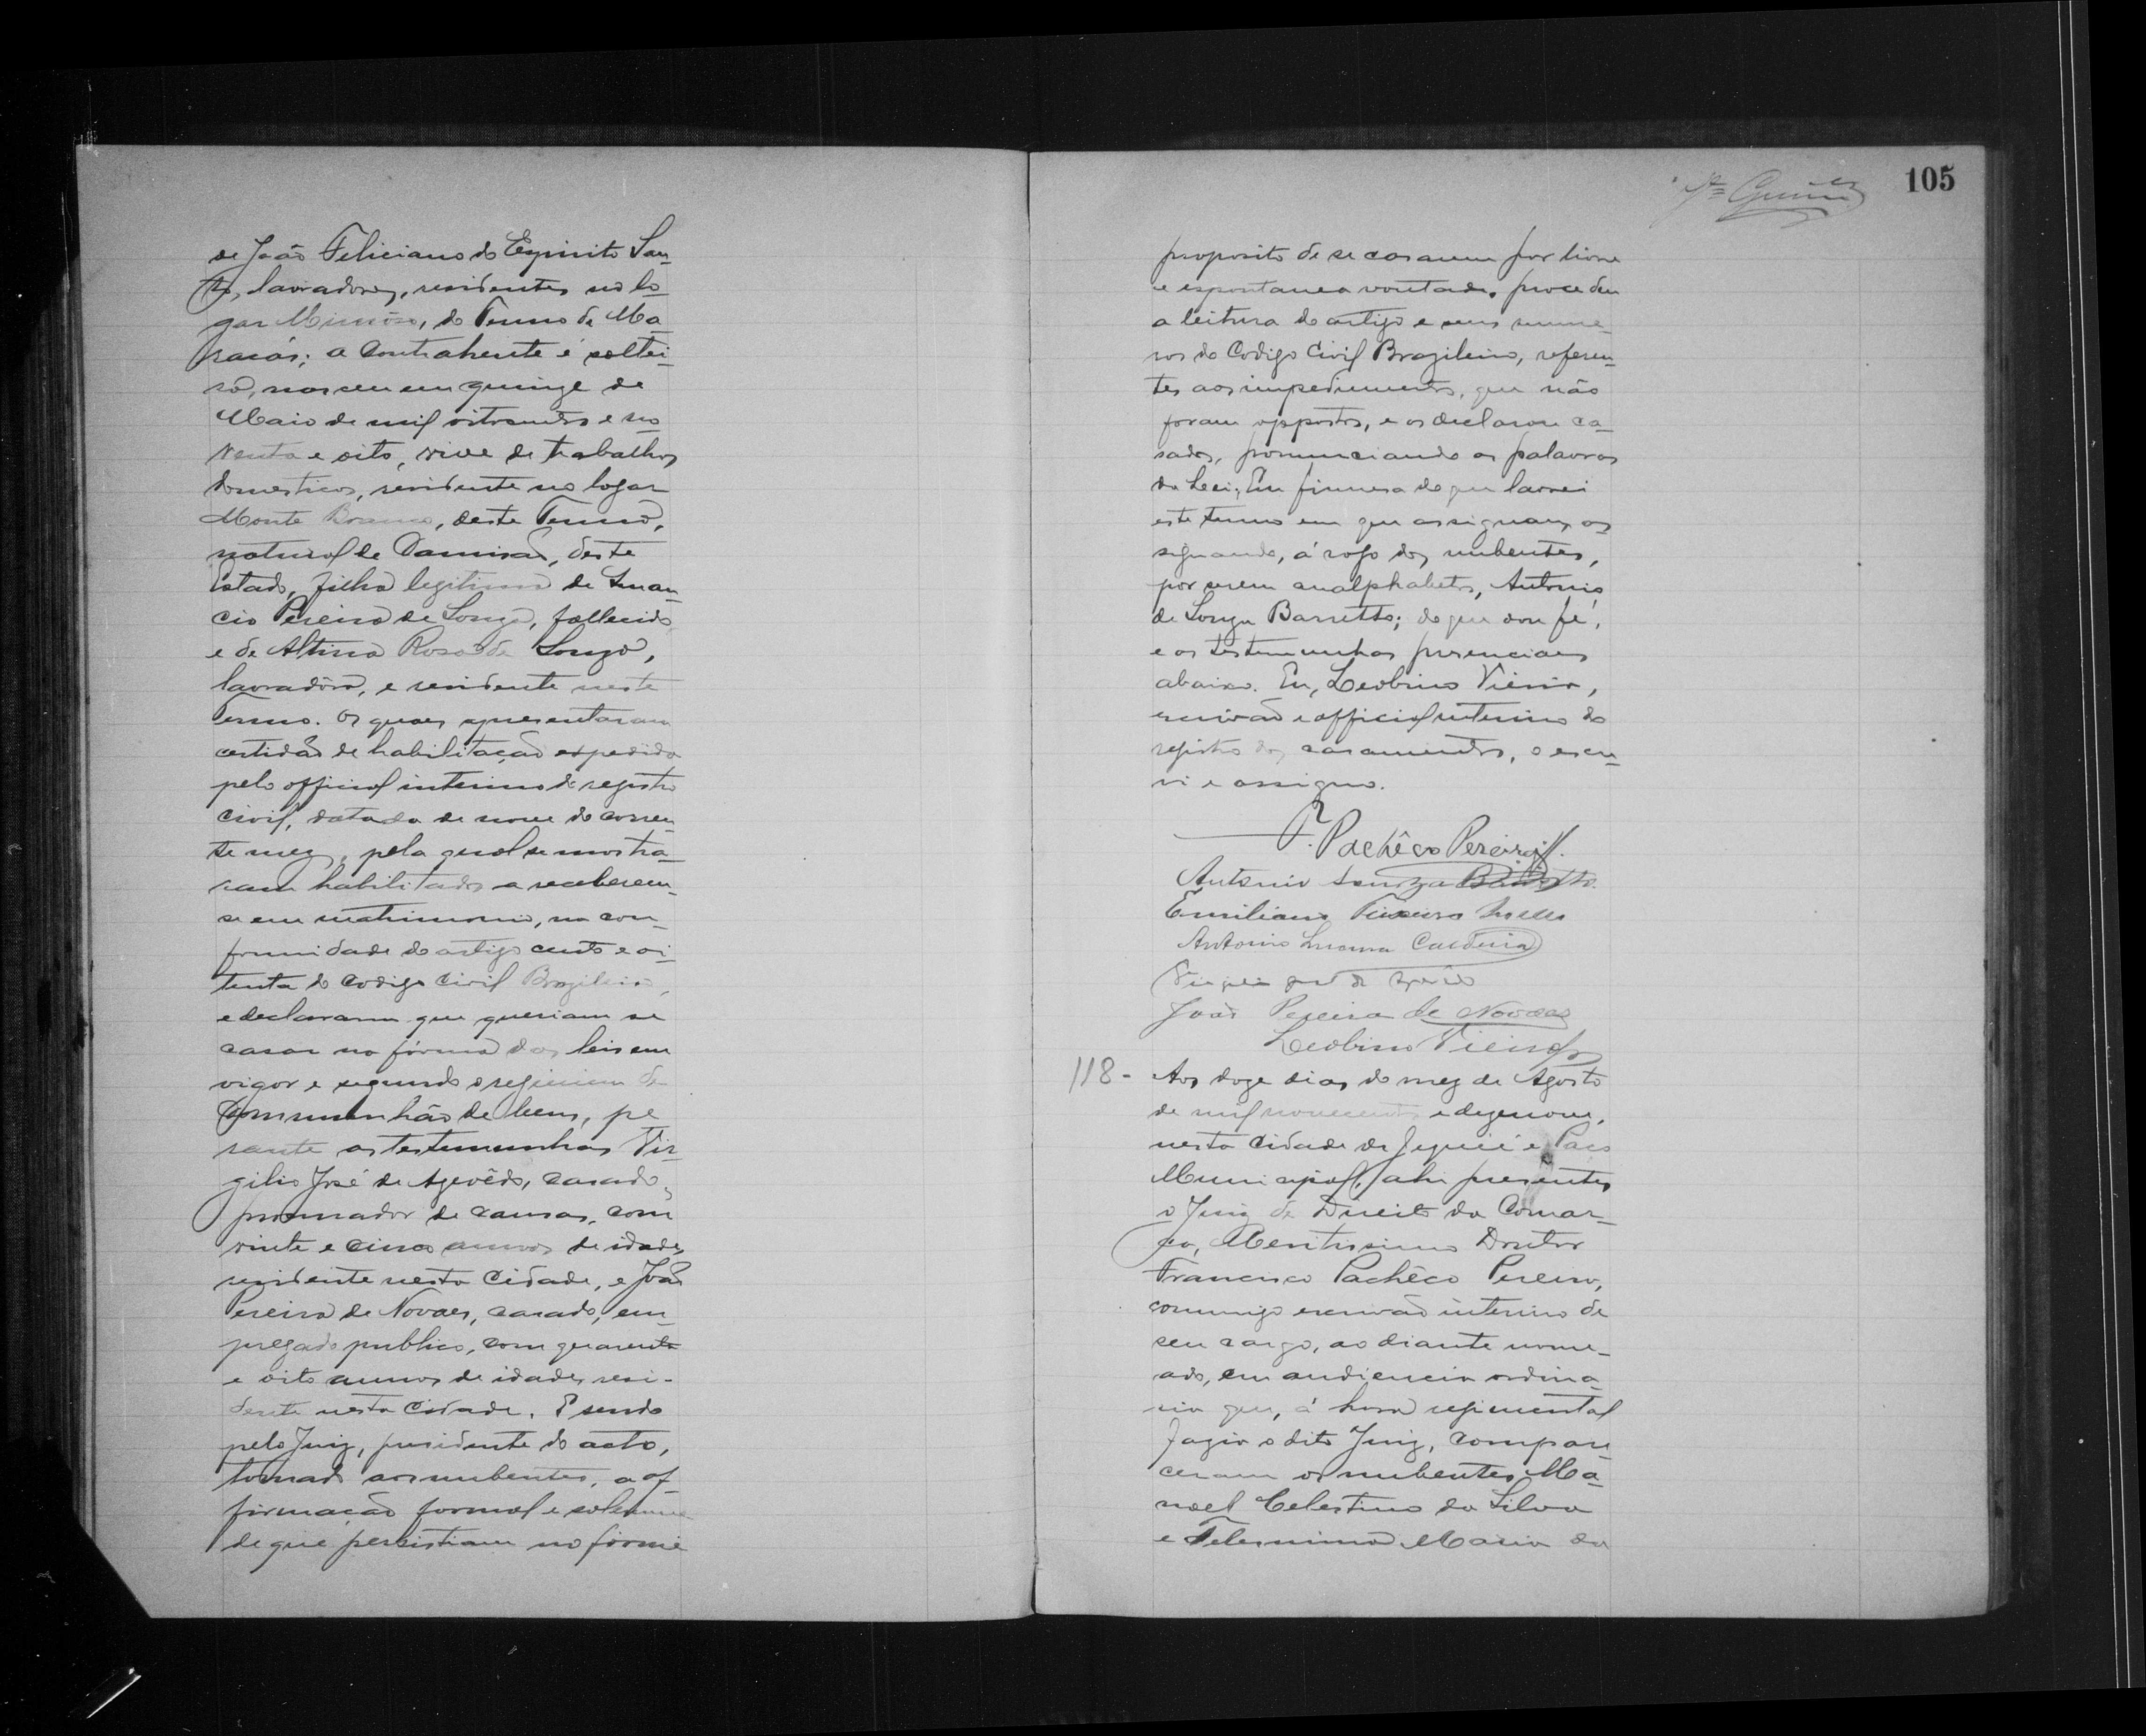 de João Feliciano do Espirito San-
to, lavradores, residentes no lo-
gar Mimôso, do Termo de Ma-
racás; a Contrahente é soltei-
ra, nasceu em quinze de
Maio de mil oitocentos e no-
venta e oito, vive de trabalhos
domesticos, residente no logar
Monte Branco, deste Termo,
natural de Damisão, deste
Estado, filha legitima de
cio Pereira de Souza, fallecido
e de Altina Rosa de Souza,
lavradôra, e residente neste
Termo. Os quaes apresentaram
certidão de habilitação expedida
pelo official interino do registro
civil, datada de nove do corren-
te mez, pela qual se mostra-
ram habilitados a receberem-
se em matrimonio, na con-
formidade do artigo cento e oi-
tenta do Codigo Civil Brazileiro,
e declararam que queriam se
casar na fórma das leis em
vigor e segundo o regimem de
Communhão de bens, pe
rante as testemunhas Vir-
gilio José de Azevêdo, casado,
procurador de causas, com
vinte e cinco annos de idade,
residente nesta Cidade, e João
Pereira de Novaes, casado, em-
pregado publico, com quarenta
e oito annos de idade, resi-
dente nesta Cidade. E sendo
pelo Juiz, presidente do acto,
tomada aos nubentes, a af-
firmação formal e solemne
de que persistiam no firme
105
proposito de se casarem por livre
e espontanea vontade, procedeu
a leitura do artigo e seus nume-
ros do Codigo Civil Brazileiro, referen-
tes aos impedimentos, que não
foram oppostos, e os declarou ca-
sados, pronunciando as palavras
da Lei. Em firmeza do que lavrei
este termo em que assignam, os
signando, á rogo dos nubentes,
por serem analphabetos, Antonio
de Souza Barretto; do que dou fé,
e as testemunhas presenciaes
abaixo. Eu, Leobino Vieira,
escrivão e official interino do
registro dos casamentos, o escre-
vi e assigno.
F. Pachêco Pereira
Antonio Souza Barretto
Emiliano Teixeira
Antonio Caldeira
João Pereira de Novaes
Leobino Vieira
118- Aos doze dias do mez de Agosto
de mil novecentos e dezenove,
nesta Cidade de Jequié e Paço
Municipal, ahi presentes
o Juiz de Direito da Comar-
ca, Meritissimo Doutor
Francisco Pachêco Pereira,
commigo escrivão interino de
seu cargo, ao diante nome-
ado, em audiencia ordina-
ria que, á hora regimental
fazia o dito Juiz, compare
ceram os nubentes Ma-
noel Celestino da Silva
e Felesmina Maria da